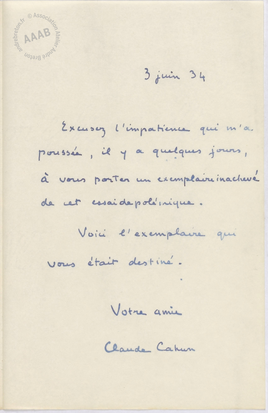 AAAB
3 juin 34
Excusez l'impatience qui m'a
poussée, il y a quelques jours,
à vous porter un exemplaire inachevé
de cet essai de polémique.
Voici l'exemplaire qui
vous était destiné.
Votre amie
Claude Cahun